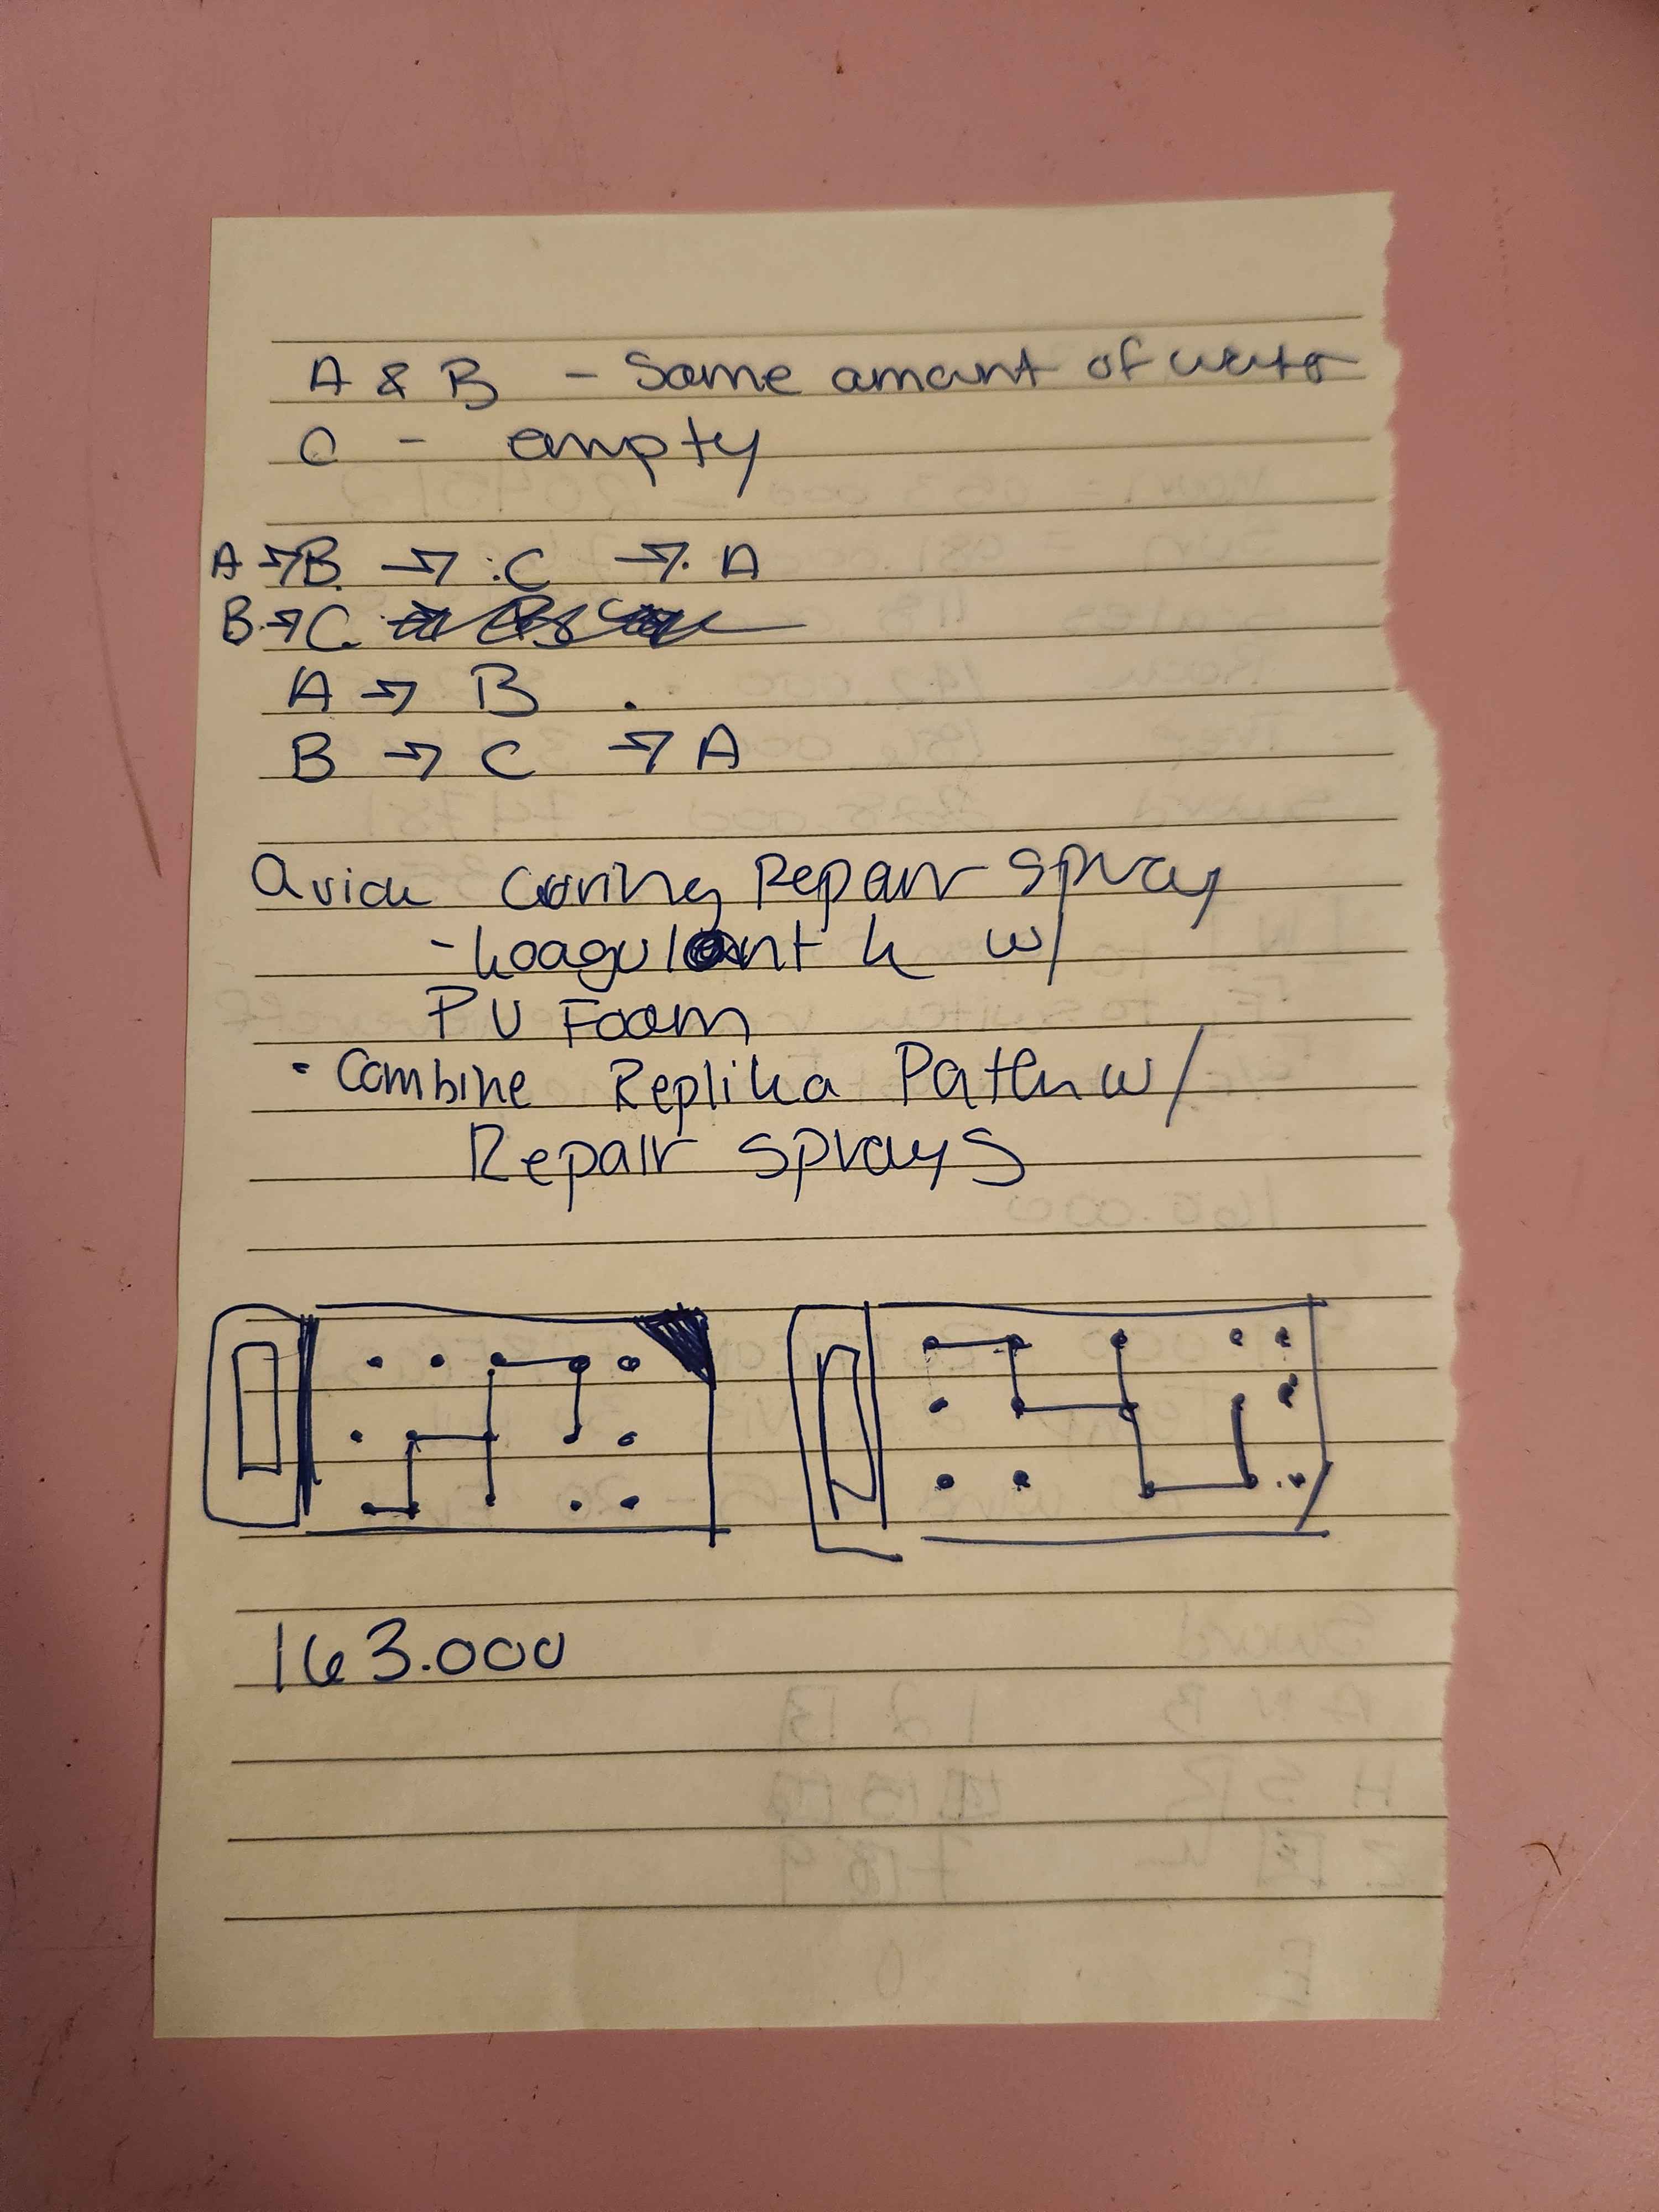 A & B - Same amount of water
C - empty
A → B → C → A
B → C
A → B
B → C → A
Repair spray
- koagulant k w/
PU Foam
· Combine Replika Patch w/
Repair sprays
163.000